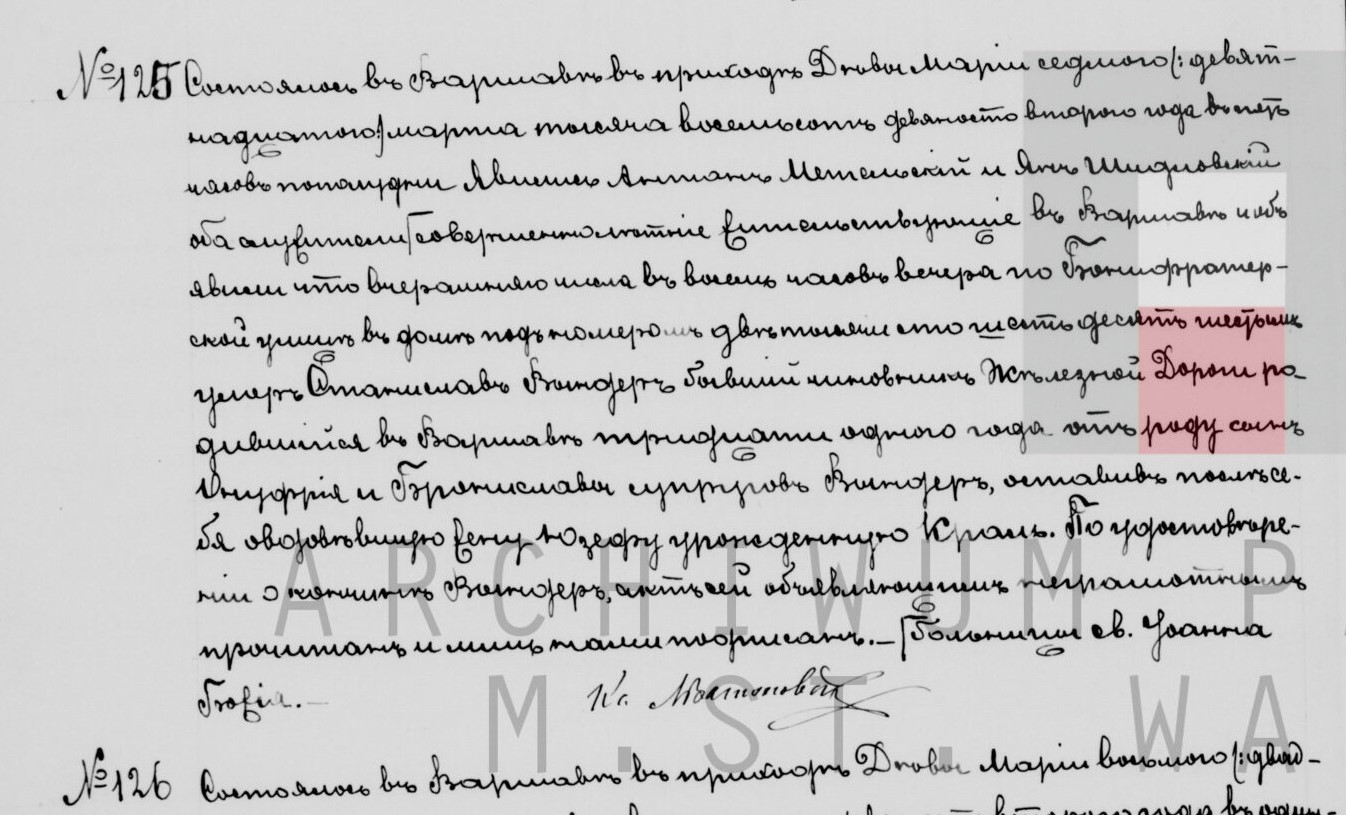 №125 Состоялось въ Варшавѣ въ приходѣ Дѣвы Маріи седмого /: девят-
надцатого:/ марта тысяча восемьсотъ девяносто второго года въ пять
часовъ пополудни Явились Антонъ Метельскій и Янъ Шидловскій
оба служители совершеннолѣтніе жительствующіе въ Варшавѣ и объ
явили что вчерашняго числа въ восемь часовъ вечера по Бонифратер-
ской улицѣ въ домѣ подъ номеромъ двѣ тысячи сто шесть десять шестымъ
умеръ Станиславъ Вындеръ бывший чиновникъ Желѣзной Дороги ро-
дившійся въ Варшавѣ тридцати одного года отъ роду сынъ
Онуфрія и Брониславы супруговъ Вындеръ, оставивъ послѣ се-
бя овдовѣвшую жену Юзефу урожденную Кроль. По удостовѣре-
ніи о кончинѣ Вындеръ, актъ сей объявляющимъ неграмотнымъ
прочитанъ и лишь нами подписанъ._ Больницы св. Іоанна
Божія._
Кс.
№126 Состоялось въ Варшавѣ въ приходѣ Дѣвы Маріи восьмого /: двад-
второго года въ один-
ARCHIWUM P
M.ST.WA